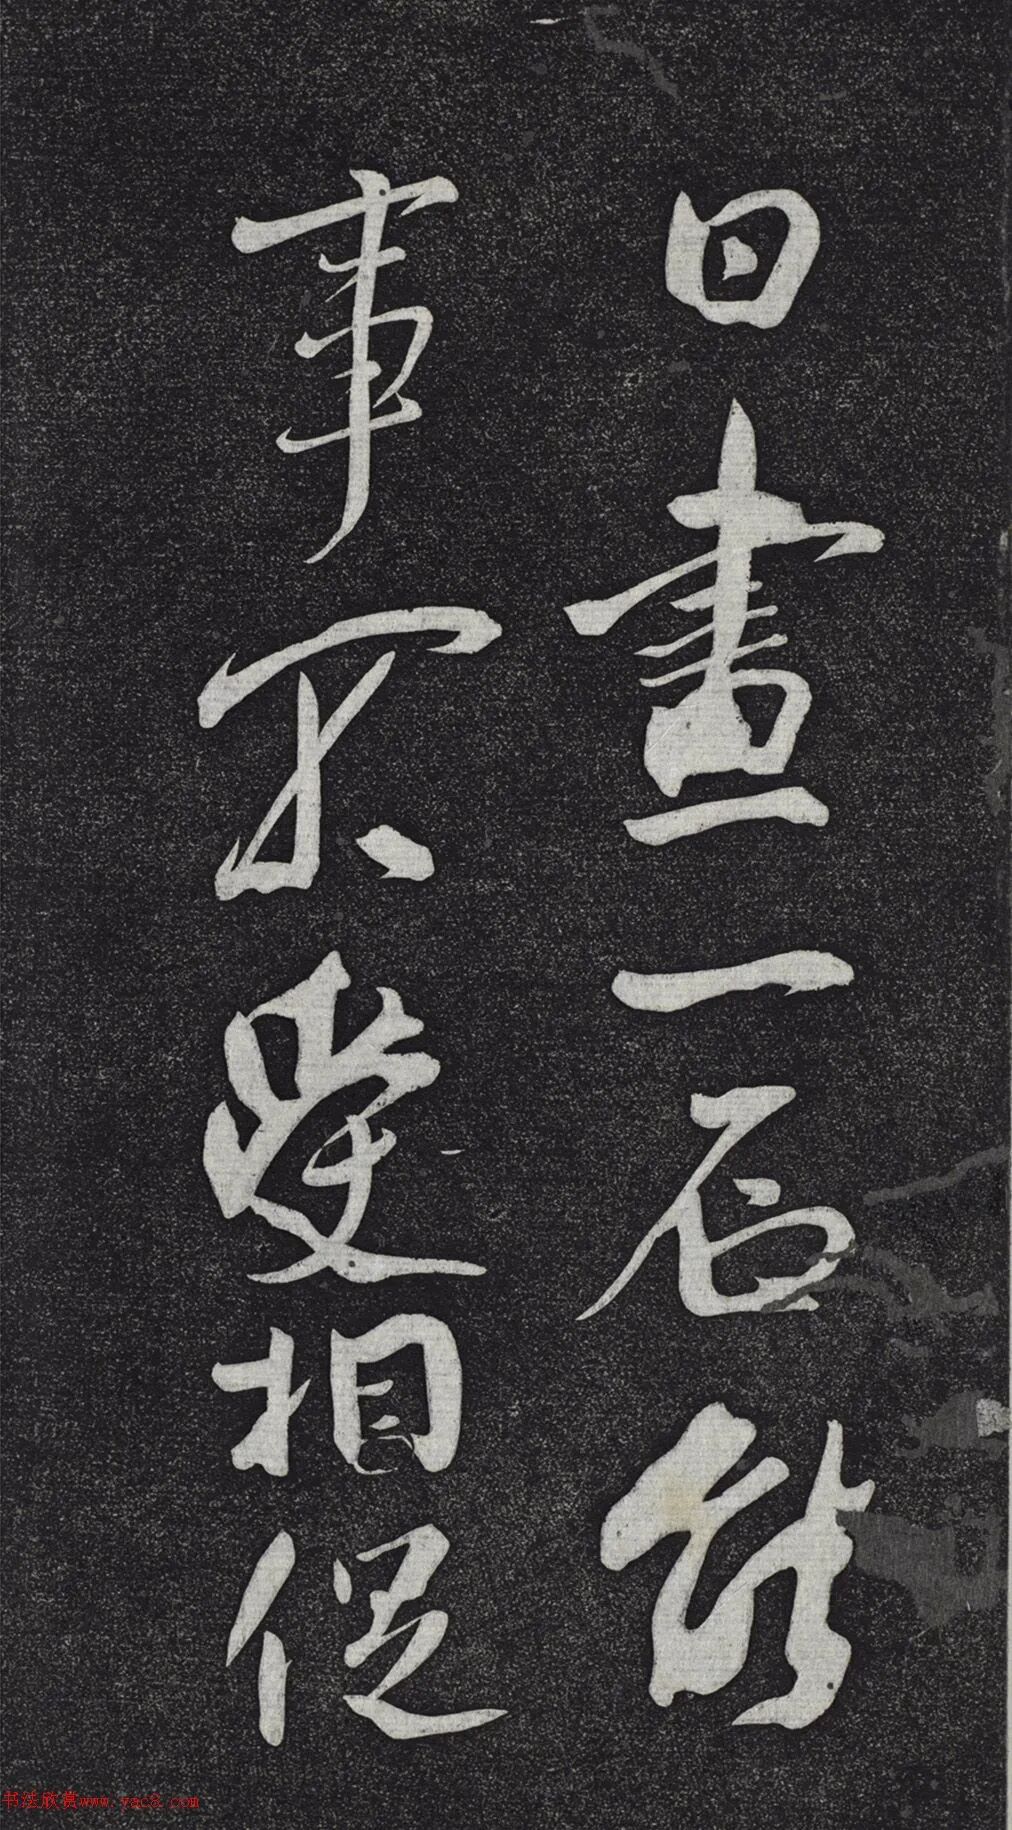 日畫一石能
事不受相促
书法欣赏www.yac8.com